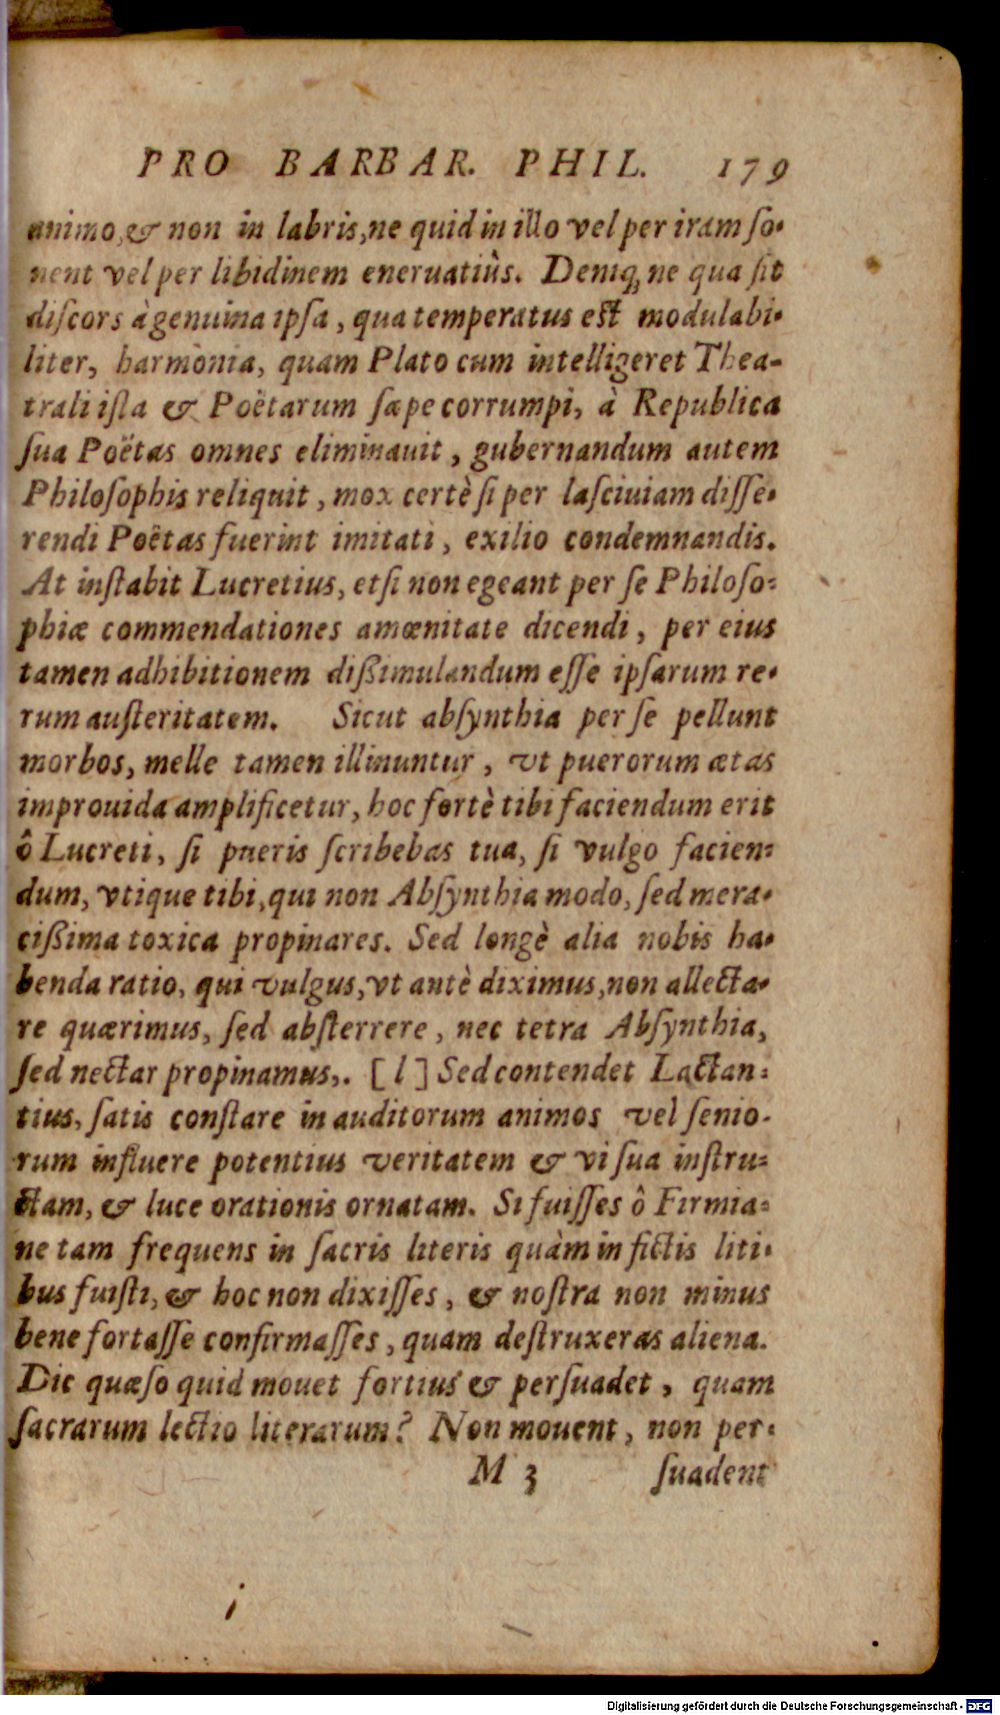 PRO BARBAR. PHIL. 179
animo, & non in labris, ne quid in illo vel per iram ſo-
nent vel per libidinem eneruatiùs. Deniq; ne qua ſit
diſcors à genuina ipſa, qua temperatus eſt modulabi-
liter, harmònia, quam Plato cum intelligeret Thea-
trali iſta & Poëtarum ſæpe corrumpi, à Republica
ſua Poëtas omnes eliminauit, gubernandum autem
Philoſophis reliquit, mox certè ſi per laſciuiam diſſe-
rendi Poëtas fuerint imitati, exilio condemnandis.
At inſtabit Lucretius, etſi non egeant per ſe Philoſo-
phiæ commendationes amœnitate dicendi, per eius
tamen adhibitionem dißimulandum eſſe ipſarum re-
rum auſteritatem. Sicut abſynthia per ſe pellunt
morbos, melle tamen illinuntur, vt puerorum ætas
improuida amplificetur, hoc fortè tibi faciendum erit
ô Lucreti, ſi pueris ſcribebas tua, ſi vulgo facien-
dum, vtique tibi, qui non Abſynthia modo, ſed mera-
cißima toxica propinares. Sed longè alia nobis ha-
benda ratio, qui vulgus, vt antè diximus, non allecta-
re quærimus, ſed abſterrere, nec tetra Abſynthia,
ſed nectar propinamus,. [l] Sed contendet Lactan-
tius, ſatis conſtare in auditorum animos vel ſenio-
rum influere potentius veritatem & vi ſua inſtru-
ctam, & luce orationis ornatam. Si fuiſſes ô Firmia-
ne tam frequens in ſacris literis quàm in fictis liti-
bus fuiſti, & hoc non dixiſſes, & noſtra non minus
bene fortaſſe confirmaſſes, quam deſtruxeras aliena.
Dic quæſo quid mouet fortius & perſuadet, quam
ſacrarum lectio literarum? Non mouent, non per-
M 3 ſuadent
Digitalisierung gefördert durch die Deutsche Forschungsgemeinschaft - DFG